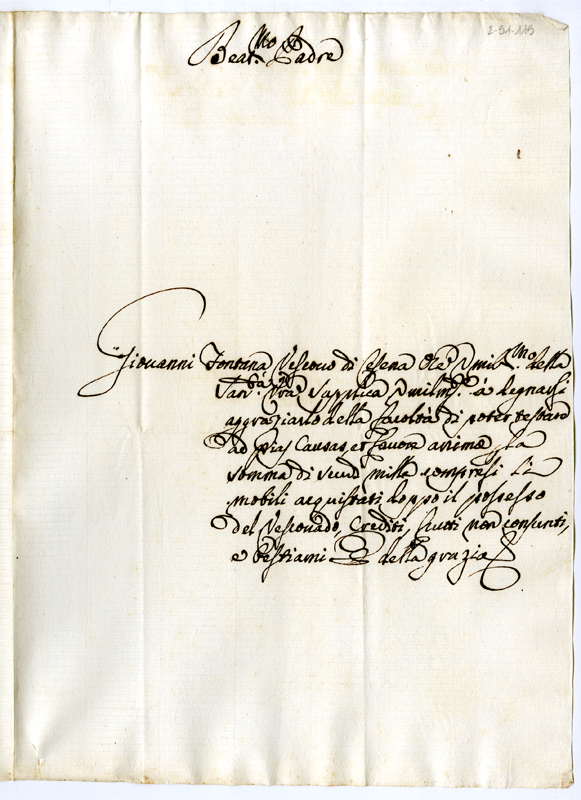 2-91-115
Beat.mo Padre
Giouanni Fontana Vescouo di Cesena Ore Vmil.mo della
San.tà Vra supplica Vmilm.e à degnarsi
aggraziarlo della facoltà di poter testare
ad pias Causas, et fauore animæ la
somma di scudi mille compresi li
mobili acquistati doppo il possesso
del Vescouado, Crediti, frutti non consunti,
e bestiami della grazia